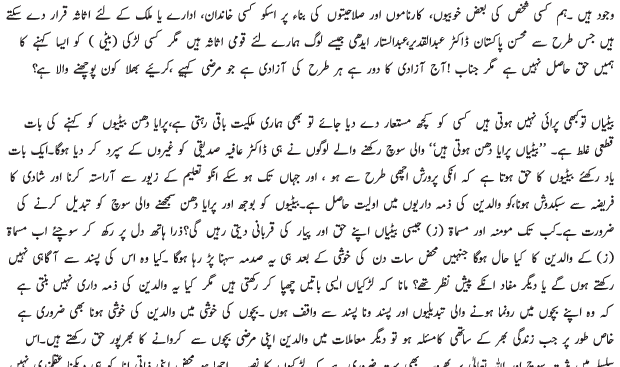 وجود ہیں ۔ہم کسی شخص کی بعض خوبیوں، کارناموں اور صلاحیتوں کی بناء پر اسکو کسی خاندان، ادارے یا ملک کے لئے اثاثہ قرار دے سکتے
ہیں جس طرح سے محسن پاکستان ڈاکٹر عبدالقدیر،عبدالستار ایدھی جیسے لوگ ہمارے لئے قومی اثاثہ ہیں مگر کسی لڑکی (بیٹی ) کو ایسا کہنے کا
ہمیں حق حاصل نہیں ہے مگر جناب !آج آزادی کا دور ہے ہر طرح کی آزادی ہے جو مرضی کہیے ،کرئیے بھلا کون پوچھنے والا ہے؟
بیٹیاں توکبھی پرائی نہیں ہوتی ہیں کسی کو کچھ مستعار دے دیا جائے تو بھی ہماری ملکیت باقی رہتی ہے،پرایا دھن بیٹیوں کو کہنے کی بات
قطعی غلط ہے۔ ''بیٹیاں پرایا دھن ہوتی ہیں'' والی سوچ رکھنے والے لوگوں نے ہی ڈاکٹر عافیہ صدیقی کو غیروں کے سپرد کر دیا ہوگا۔ایک بات
یاد رکھنے بیٹیوں کا حق ہوتا ہے کہ انکی پرورش اچھی طرح سے ہو ، اور جہاں تک ہو سکے انکو تعلیم کے زیور سے آراستہ کرنا اور شادی کا
فریضہ سے سبکدوش ہونا،کو والدین کی ذمہ داریوں میں اولیت حاصل ہے۔بیٹیوں کو بوجھ اور پرایا دھن سمجھنے والی سوچ کو تبدیل کرنے کی
ضرورت ہے۔کب تک مومنہ اور مسماۃ (ز) جیسی بیٹیاں اپنے حق اور پیار کی قربانی دیتی رہیں گی؟ذرا ہاتھ دل پر رکھ کر سوچئے اب مسماۃ
(ز) کے والدین کا کیا حال ہوگا جنہیں محض سات دن کی خوشی کے بعد ہی یہ صدمہ سہنا پڑ رہا ہوگا۔کیا وہ اس کی پسند سے آگاہی نہیں
رکھتے ہوں گے یا دیگر مفاد انکے پیش نظر تھے؟ مانا کہ لڑکیاں ایسی باتیں چھپا کر رکھتی ہیں مگر کیا یہ والدین کی ذمہ داری نہیں بنتی ہے
کہ وہ اپنے بچوں میں رونما ہونے والی تبدیلیوں اور پسند ونا پسند سے واقف ہوں ۔بچوں کی خوشی میں والدین کی خوشی ہونا بھی ضروری ہے
خاص طور پر جب زندگی بھر کے ساتھی کامسئلہ ہو تو دیگر معاملات میں والدین اپنی مرضی بچوں سے کروانے کا بھرپور حق رکھتے ہیں۔اس